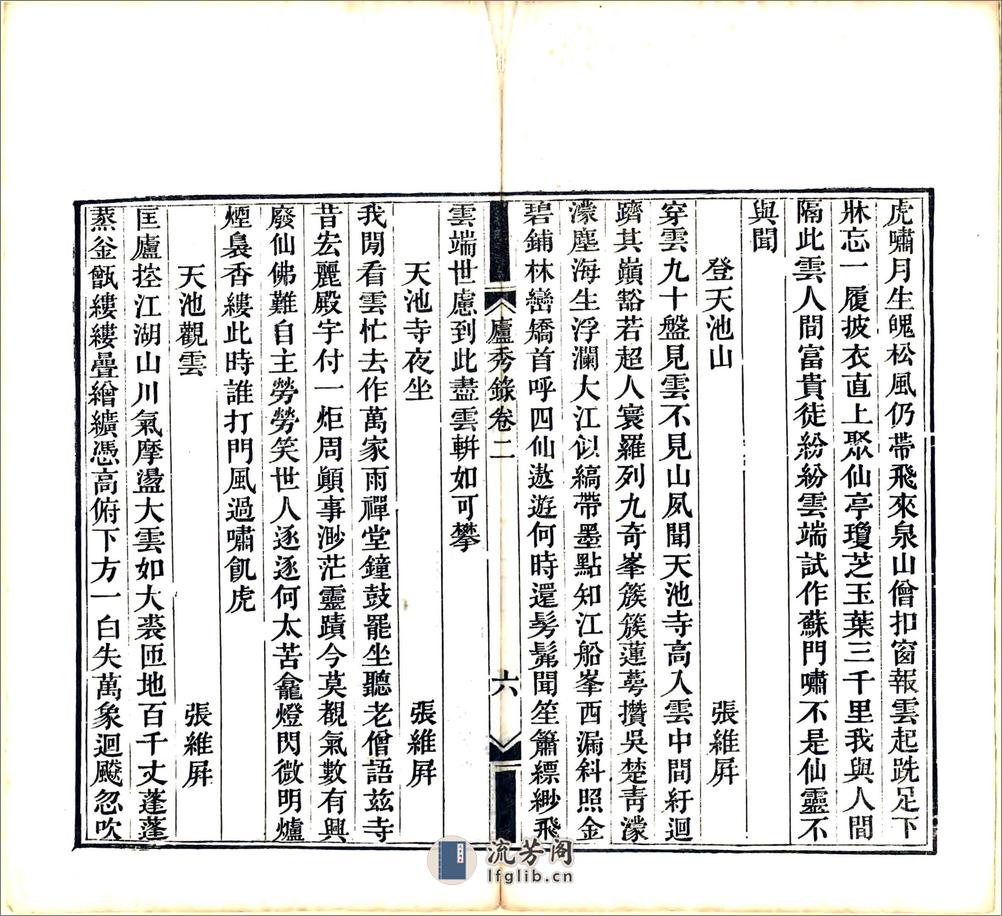 虎嘯月生魄松風仍帶飛來泉山僧扣窗報雲起跣足下
牀忘一履披衣直上聚仙亭瓊芝玉葉三千里我與人間
隔此雲人間富貴徒紛紛雲端試作蘇門嘯不是仙靈不
與聞
登天池山 張維屛
穿雲九十盤見雲不見山夙聞天池寺高入雲中間紆迴
躋其巔豁若超人寰羅列九奇峯簇簇蓮萼攢吳楚靑濛
濛塵海生浮瀾大江似縞帶墨點知江船峯西漏斜照金
碧鋪林巒矯首呼四仙遨遊何時還髣髴聞笙簫縹緲飛
廬秀錄卷二
六
雲端世慮到此盡雲軿如可攀
天池寺夜坐 張維屛
我閒看雲忙去作萬家雨禪堂鐘鼓罷坐聽老僧語茲寺
昔宏麗殿宇付一炬周顚事渺茫靈蹟今莫覩氣數有興
廢仙佛難自主勞勞笑世人逐逐何太苦龕燈閃微明爐
煙裊香縷此時誰打門風過嘯飢虎
天池觀雲 張維屛
匡廬控江湖山川氣摩盪大雲如大裘匝地百千丈蓬蓬
蒸釜甑縷縷疊繒纊憑高俯下方一白失萬象迴飈忽吹
流芳阁
lfglib.cn